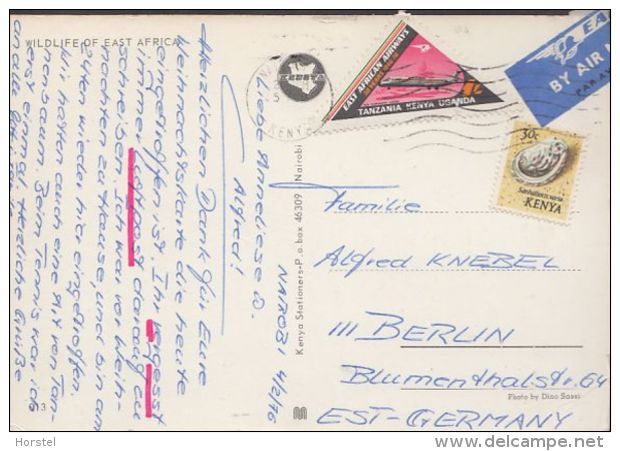 WILDLIFE OF EAST AFRICA
NAIROBI 4/2/76
Liebe Anneliese &
Alfred!
Herzlichen Dank für Eure
Weihnachtskarte die heute
eingetroffen ist. Ihr vergesst
immer Luftpost darauf zu
schreiben. Ich war vor Weih-
nachten zu Hause, und bin am
wieder hier eingetroffen.
Wir hatten auch eine Art von Tan-
nenbaum. Beim Tennis war ich
erst einmal. Herzliche Grüße
Kenya Stationers-P.o.box 46309 - Nairobi
KENYA
EAST AFRICAN AIRWAYS
TANZANIA KENYA UGANDA
1/-
BY AIR M
PAR AV
30c
KENYA
Familie
Alfred KNEBEL
111 BERLIN
Blumenthalstr. 64
EST-GERMANY
Photo by Dino Sassi
Horstel
www.delcampe.net